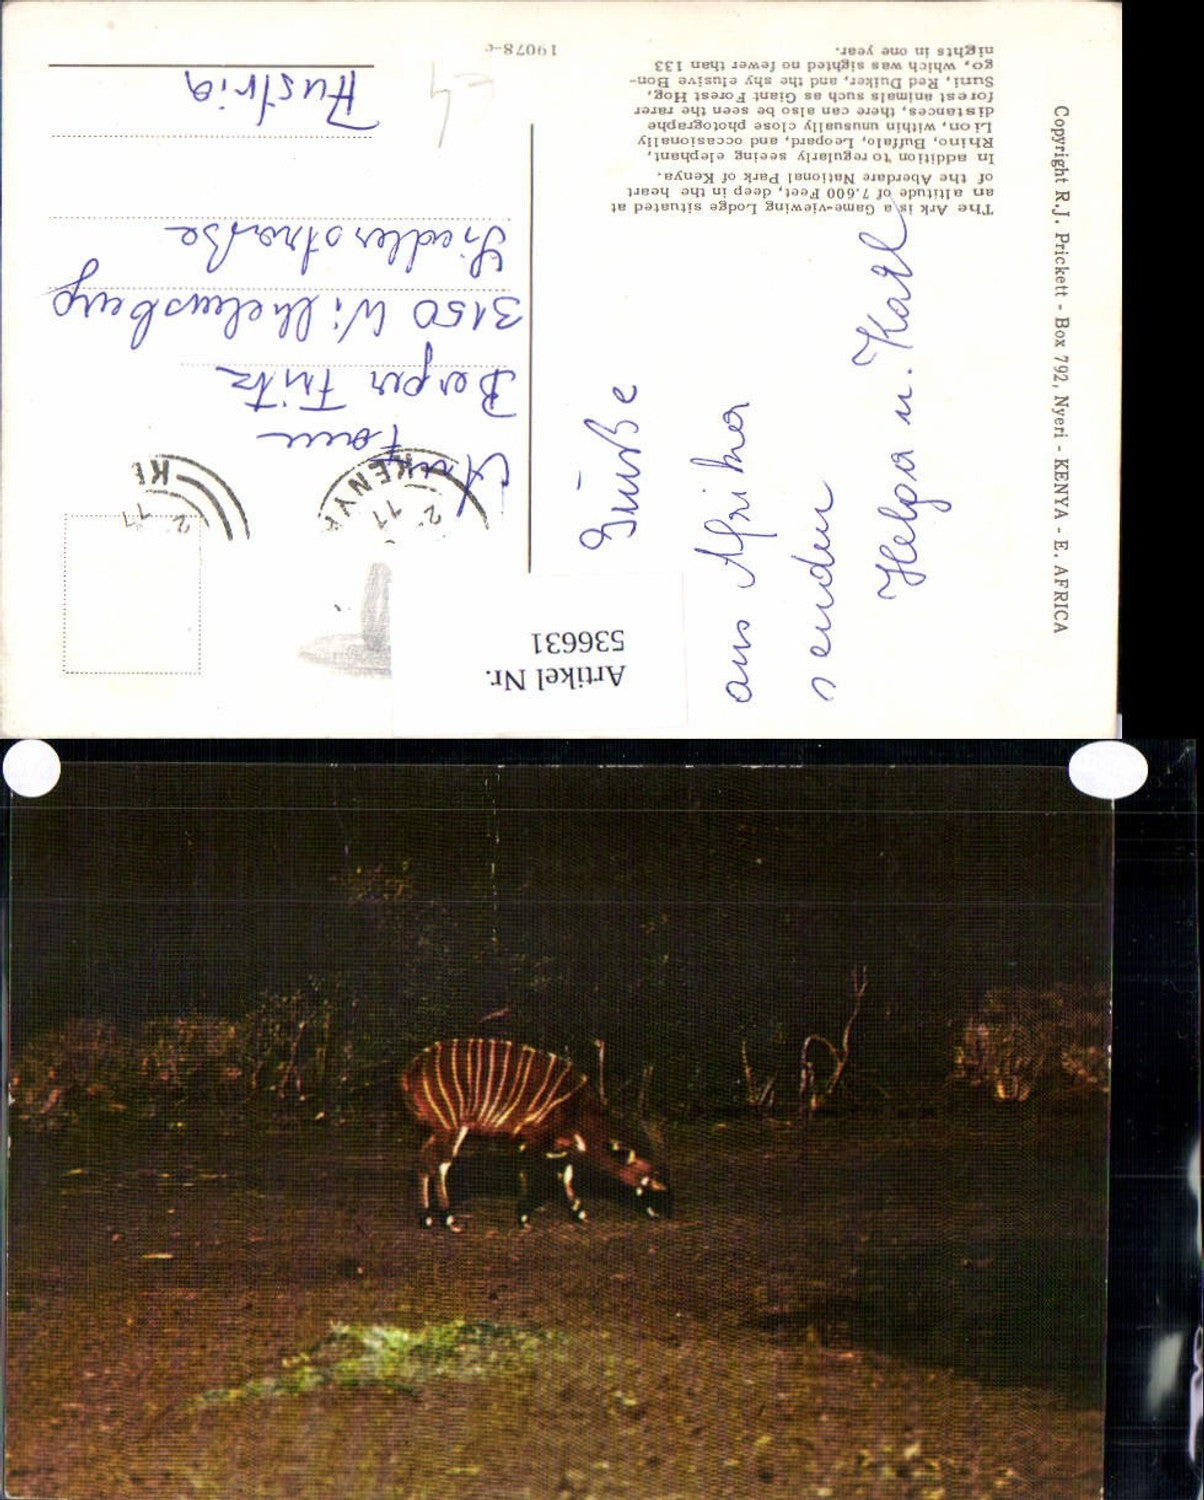 The Ark is a Game-viewing Lodge situated at
an altitude of 7.600 Feet, deep in the heart
of the Aberdare National Park of Kenya.
In addition to regularly seeing elephant,
Rhino, Buffalo, Leopard, and occasionally
Lion, within unusually close photographe
distances, there can also be seen the rarer
forest animals such as Giant Forest Hog,
Suni, Red Duiker, and the shy elusive Bon-
go, which was sighted no fewer than 133
nights in one year.
19078-c
Copyright R.J. Prickett - Box 792, Nyeri - KENYA - E. AFRICA
Grüße
aus Afrika
senden
Helga u. Karl
Artikel Nr.
536631
KENYA
2
11
KE
2
11
Fritz
3150 Wilhelmsburg
Siedlerstraße
Austria